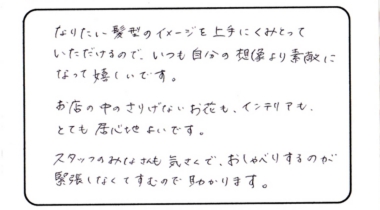 なりたい髪型のイメージを上手にくみとって
いただけるので、いつも自分の想像より素敵に
なって嬉しいです。
お店の中のさりげないお花も、インテリアも、
とても居心地よいです。
スタッフのみなさんも気さくで、おしゃべりするのが
緊張しなくてすむので助かります。